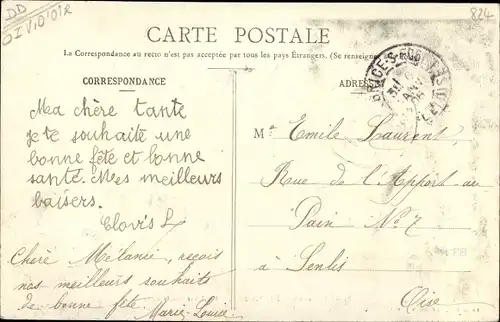 DD
824
CARTE POSTALE
La Correspondance au recto n'est pas acceptée par tous les pays Étrangers. (Se renseigner
CORRESPONDANCE
ADRES
Ma chère tante
je te souhaite une
bonne fête et bonne
santé. Mes meilleurs
baisers.
Clovis L
Chère Mélanie, reçois
nos meilleurs souhaits
de bonne fête. Marie-Louise
Me Emile Laurent
Rue de l'Apport au
Pain No 7
à Senlis
Oise